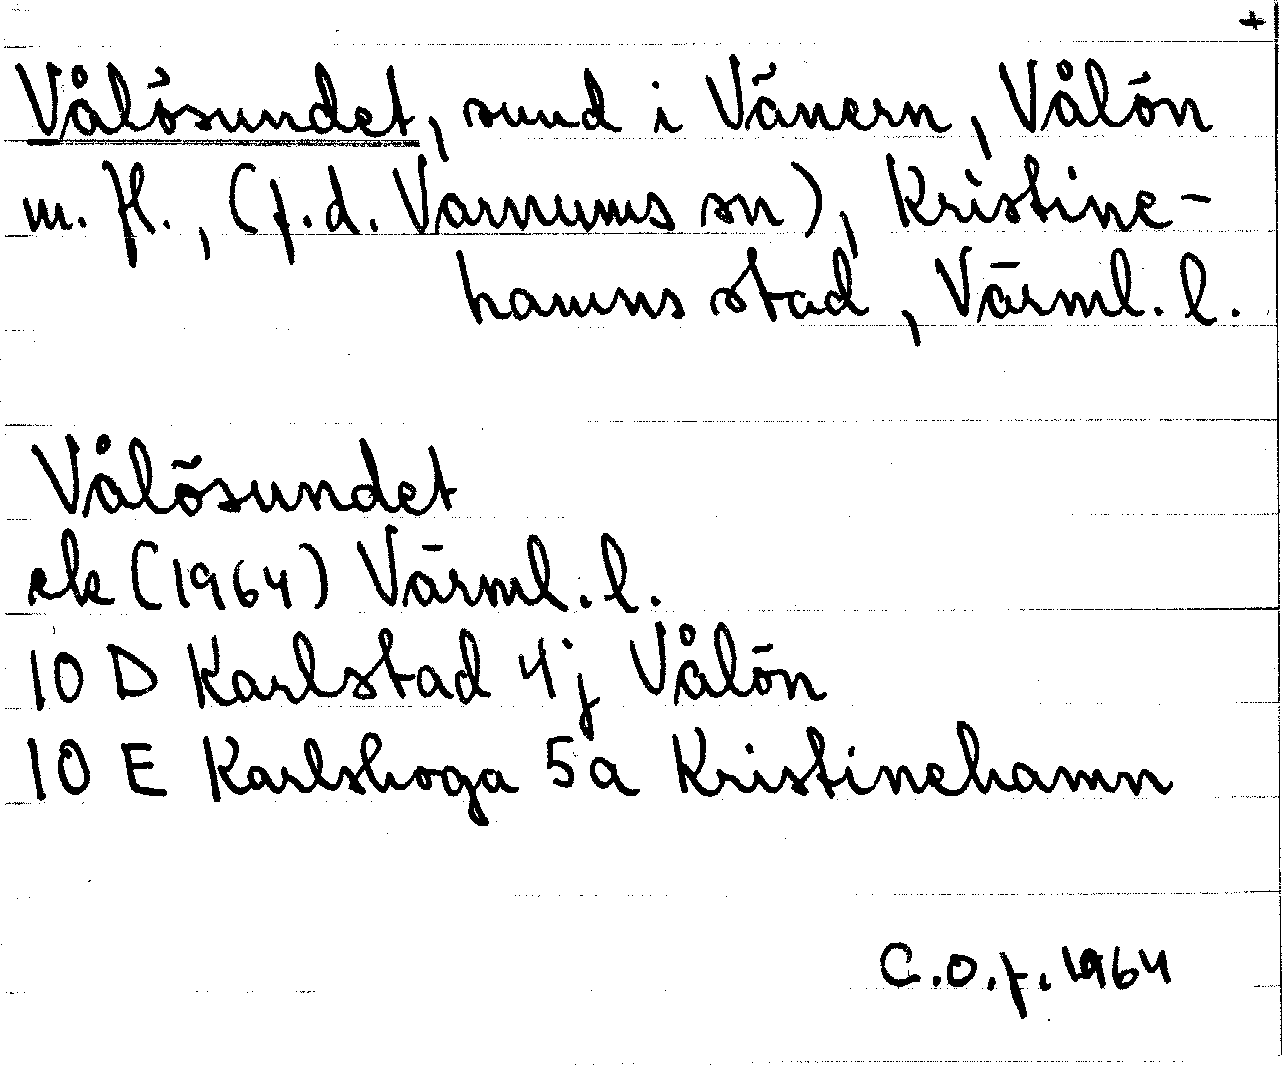 +
Vålösundet, sund i Vänern, Vålön
m. fl., (f.d. Varnums sn), Kristine-
hamns stad, Värml. l.
Vålösundet
ek (1964) Värml. l.
10 D Karlstad 4j Vålön
10 E Karlskoga 5a Kristinehamn
C.O.f. 1964